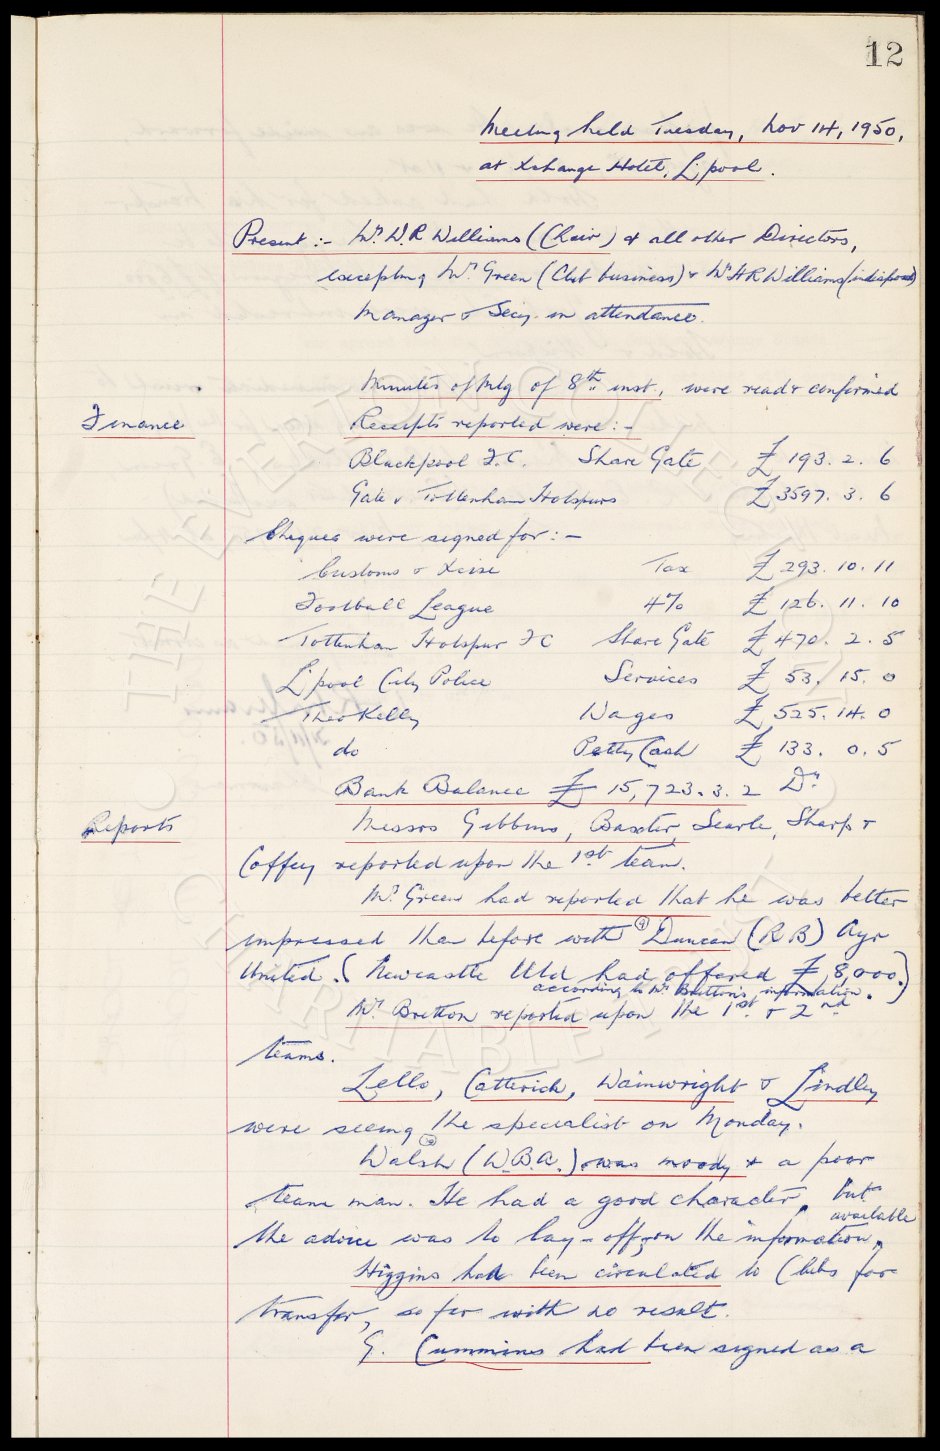 12
Meeting held Tuesday, Nov 14, 1950,
at Xchange Hotel, L'pool.
Present :- Mr. W.R Williams (Chair) & all other Directors,
excepting Mr. Green (Club business) & Mr. H R Williams (indisposed)
Manager & Secy. in attendance.
Minutes of Mtg of 8th inst., were read & confirmed
Finance
Receipts reported were :-
Blackpool F.C. Share Gate £ 193. 2. 6
Gate v Tottenham Hotspurs £ 3597. 3. 6
Cheques were signed for :-
Customs & Xcise Tax £ 293. 10. 11
Football League 4% £ 126. 11. 10
Tottenham Hotspur F C Share Gate £ 470. 2. 5
L'pool City Police Services £ 53. 15. 0
Theo Kelly Wages £ 525. 14. 0
do Petty Cash £ 133. 0. 5
Bank Balance £ 15,723. 3. 2 Dr.
Reports
Messrs Gibbins, Baxter, Searle, Sharp &
Coffey reported upon the 1st team.
Mr. Green had reported that he was better
impressed than before with (9) Duncan (R B) Ayr
United. (Newcastle Utd had offered £8,000.)
according to Mr. Britton's information.
Mr. Britton reported upon the 1st. & 2nd
teams.
Lello, Catterick, Wainwright & Lindley
were seeing the specialist on Monday.
Walsh (W.B.A.) was moody & a poor
team man. He had a good character, but
the advice was to lay-off, on the information available.
Higgins had been circulated to Clubs for
transfer, so far with no result.
G. Cummins had been signed as a
THE EVERTON COLLECTION
CHARITABLE